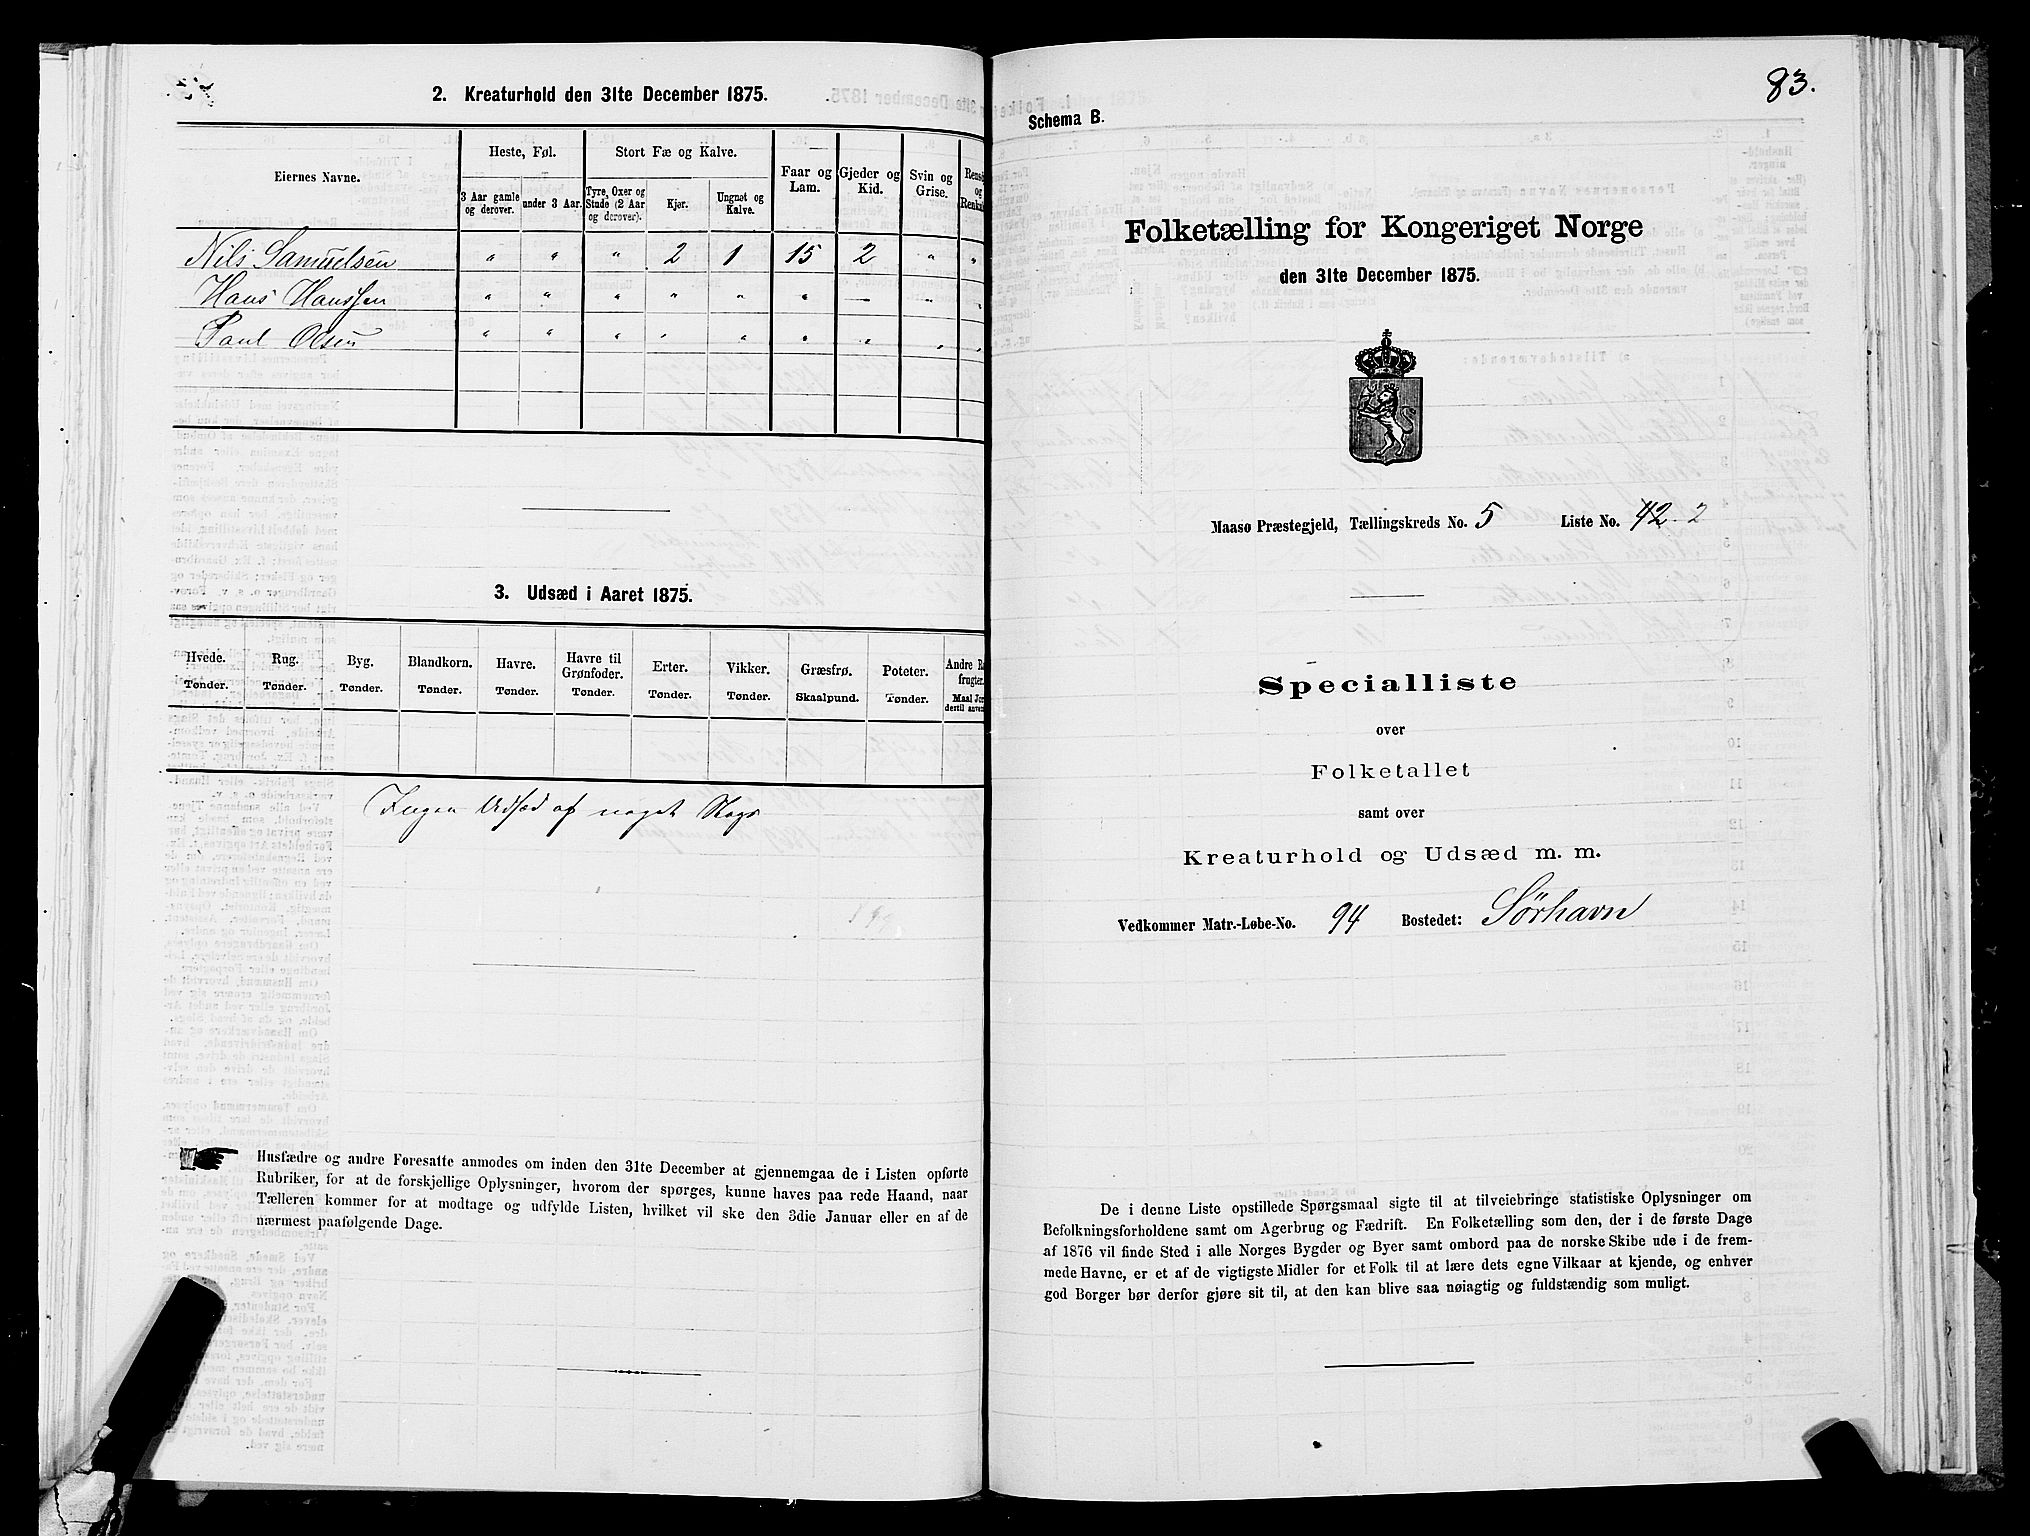 2. Kreaturhold den 31te December 1875.
Eiernes Navne.
Heste, Føl.
Stort Fæ og Kalve.
Faar og Lam.
Gjeder og Kid.
Svin og Grise.
3 Aar gamle og derover.
under 3 Aar.
Tyre, Oxer og Stude (2 Aar og derover).
Kjør.
Ungnøt og Kalve.
Nils Samuelsen " " " 2 1 15 2 " "
Hans Hanssen " " " " " " — " "
Paul Olsen " " " " " " " " "
3. Udsæd i Aaret 1875.
Hvede. Rug. Byg. Blandkorn. Havre. Havre til Grønfoder. Erter. Vikker. Græsfrø. Poteter.
Tønder. Tønder. Tønder. Tønder. Tønder. Tønder. Tønder. Tønder. Skaalpund. Tønder.
Ingen Udsæd af noget Slags
Husfædre og andre Foresatte anmodes om inden den 31te December at gjennemgaa de i Listen opførte
Rubriker, for at de forskjellige Oplysninger, hvorom der spørges, kunne haves paa rede Haand, naar
Tælleren kommer for at modtage og udfylde Listen, hvilket vil ske den 3die Januar eller en af de
nærmest paafølgende Dage.
83.
Schema B.
Folketælling for Kongeriget Norge
den 31te December 1875.
Maasø Præstegjeld, Tællingskreds No. 5 Liste No. 42 2
Specialliste
over
Folketallet
samt over
Kreaturhold og Udsæd m. m.
Vedkommer Matr.-Løbe-No. 94 Bostedet: Sørhavn
De i denne Liste opstillede Spørgsmaal sigte til at tilveiebringe statistiske Oplysninger om
Befolkningsforholdene samt om Agerbrug og Fædrift. En Folketælling som den, der i de første Dage
af 1876 vil finde Sted i alle Norges Bygder og Byer samt ombord paa de norske Skibe ude i de frem-
mede Havne, er et af de vigtigste Midler for et Folk til at lære dets egne Vilkaar at kjende, og enhver
god Borger bør derfor gjøre sit til, at den kan blive saa nøiagtig og fuldstændig som muligt.